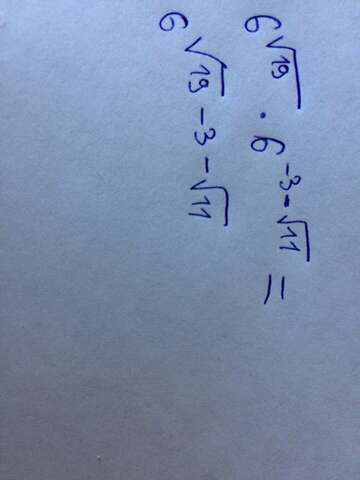 6^√19 · 6^-3-√11 =
6^√19-3-√11